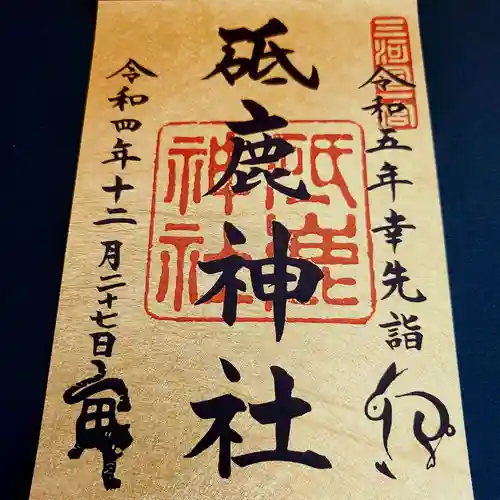 三河国一宮
令和五年幸先詣
卯
砥鹿神社
砥鹿神社
令和四年十二月二十七日
寅